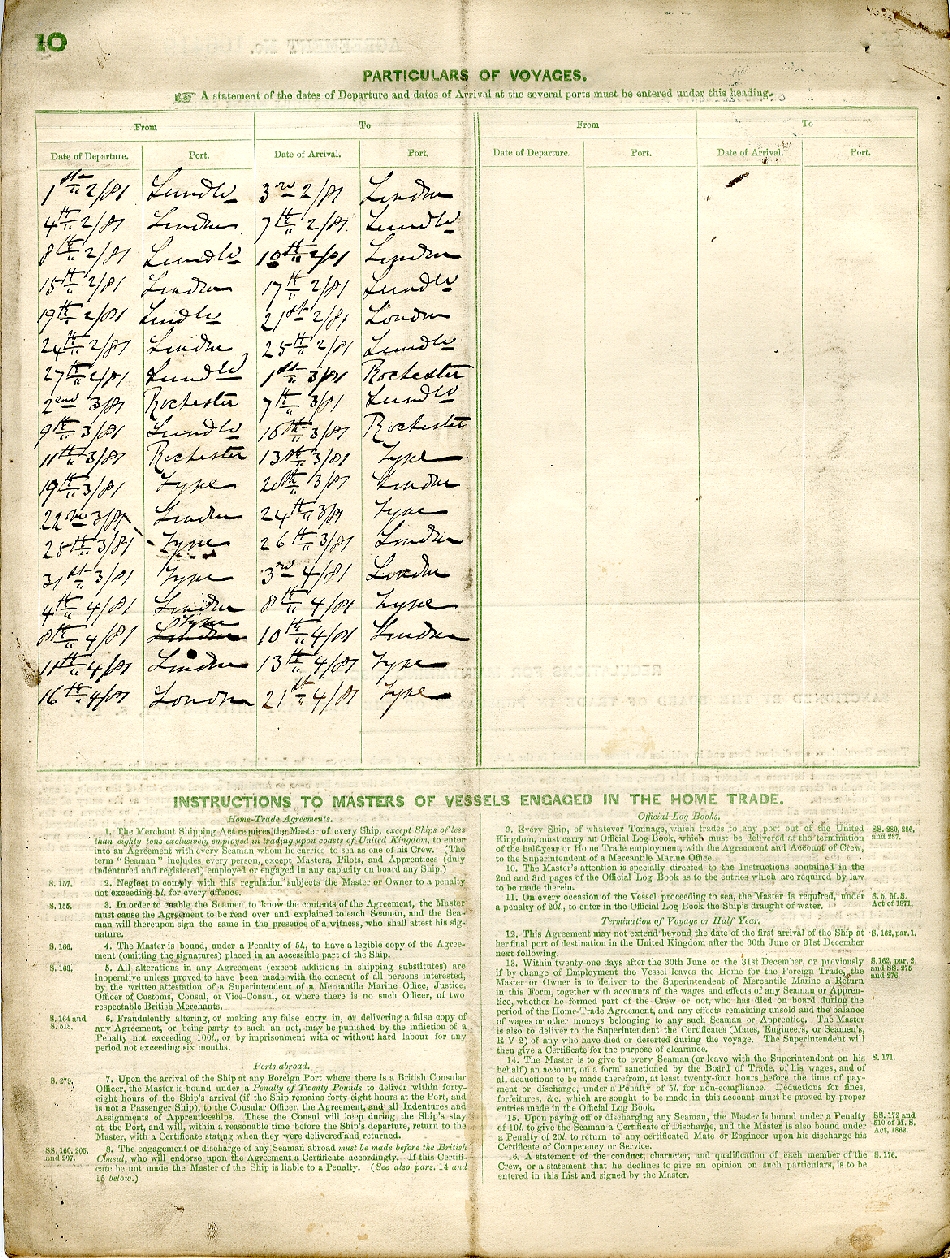 10
PARTICULARS OF VOYAGES.
A statement of the dates of Departure and dates of Arrival at the several ports must be entered under this heading.
From To From To
Date of Departure. Port. Date of Arrival. Port. Date of Departure. Port. Date of Arrival. Port.
1st 2/81 3rd 2/81 London
4th 2/81 London 7th 2/81
8th 2/81 10th 2/81 London
15th 2/81 London 17th 2/81
19th 2/81 21st 2/81 London
24th 2/81 London 25th 2/81
27th 2/81 1st 3/81 Rochester
2nd 3/81 Rochester 7th 3/81
9th 3/81 3/81 Rochester
11th 3/81 Rochester 13th 3/81 Tyne
19th 3/81 Tyne 20th 3/81 London
22nd 3/81 London 24th 3/81 Tyne
25th 3/81 Tyne 26th 3/81 London
31st 3/81 Tyne 3rd 4/81 London
4th 4/81 London 8th 4/81 Tyne
8th 4/81 Tyne London 10th 4/81 London
11th 4/81 London 13th 4/81 Tyne
16th 4/81 London 21st 4/81 Tyne
INSTRUCTIONS TO MASTERS OF VESSELS ENGAGED IN THE HOME TRADE.
Home-Trade Agreements.
1. The Merchant Shipping Act requires the Master of every Ship, except Ships of less
than eighty tons exclusively employed in trading upon coasts of United Kingdom, to enter
into an Agreement with every Seaman whom he carries to sea as one of his Crew. The
term "Seaman" includes every person, except Masters, Pilots, and Apprentices (duly
indentured and registered) employed or engaged in any capacity on board any Ship.)
S. 157. 2. Neglect to comply with this regulation subjects the Master or Owner to a penalty
not exceeding 5l. for every offence.
S. 155. 3. In order to enable the Seaman to know the contents of the Agreement, the Master
must cause the Agreement to be read over and explained to each Seaman, and the Sea-
man will thereupon sign the same in the presence of a witness, who shall attest his sig-
nature.
S. 166. 4. The Master is bound, under a Penalty of 5l., to have a legible copy of the Agree-
ment (omitting the signatures) placed in an accessible part of the Ship.
S. 163. 5. All alterations in any Agreement (except additions in shipping substitutes) are
inoperative unless proved to have been made with the consent of all persons interested,
by the written attestation of a Superintendent of a Mercantile Marine Office, Justice,
Officer of Customs, Consul, or Vice-Consul, or where there is no such Officer, of two
respectable British Merchants.
S. 164 and 6. Fraudulently altering, or making any false entry in, or delivering a false copy of
any Agreement, or being party to such an act, may be punished by the infliction of a
Penalty not exceeding 100l., or by imprisonment with or without hard labour for any
period not exceeding six months.
Ports abroad.
7. Upon the arrival of the Ship at any Foreign Port where there is a British Consular
Officer, the Master is bound under a Penalty of Twenty Pounds to deliver within forty-
eight hours of the Ship's arrival (if the Ship remains forty eight hours at the Port, and
is not a Passenger Ship), to the Consular Officer, the Agreement, and all Indentures and
Assignments of Apprenticeships. These the Consul will keep during the Ship's stay
at the Port, and will, within a reasonable time before the Ship's departure, return to the
Master, with a Certificate stating when they were delivered and returned.
8. The engagement or discharge of any Seaman abroad must be made before the British
Consul, who will endorse upon the Agreement a Certificate accordingly. If this Certifi-
cate be not made the Master of the Ship is liable to a Penalty. (See also pars. 14 and
15 below.)
Official Log Books.
9. Every Ship, of whatever Tonnage, which trades to any port out of the United
Kingdom, must carry an Official Log Book, which must be delivered at the termination
of the half year or if no Trade employment, with the Agreement and Account of Crew,
to the Superintendent of a Mercantile Marine Office.
10. The Master's attention is specially directed to the Instructions contained in the
2nd and 3rd pages of the Official Log Book as to the entries which are required by law
to be made therein.
11. On every occasion of the Vessel proceeding to sea, the Master is required, under
a penalty of 20l., to enter in the Official Log Book the Ship's draught of water.
Act of 1871.
Termination of Voyage or Half Year.
12. This Agreement may not extend beyond the date of the first arrival of the Ship at
her final port of destination in the United Kingdom after the 30th June or 31st December
next following.
S. 162, par. 1.
13. Within twenty-one days after the 30th June or the 31st December, or previously
if by change of Employment the Vessel leaves the Home for the Foreign Trade, the
Master or Owner is to deliver to the Superintendent of Mercantile Marine a Return
in this Form, together with accounts of the wages and effects of any Seaman or Appren-
tice, whether he formed part of the Crew or not, who has died on board during the
period of the Home-Trade Agreement, and any effects remaining unsold and the balance
of wages or other moneys belonging to any such Seaman or Apprentice. The Master
is also to deliver to the Superintendent the Certificates (Mates, Engineers, or Seamen's,
R V 2) of any who have died or deserted during the voyage. The Superintendent will
then give a Certificate for the purpose of clearance.
14. The Master is to give to every Seaman (or leave with the Superintendent on his
behalf) an account, on a form sanctioned by the Board of Trade, of his wages, and of
all deductions to be made therefrom, at least twenty-four hours before the time of pay-
ment or discharge, under a Penalty of 5l. for non-compliance. Deductions for fines,
forfeitures, &c. which are sought to be made in this account must be proved by proper
entries made in the Official Log Book.
S. 171.
15. Upon paying off or discharging any Seaman, the Master is bound under a Penalty
of 10l. to give the Seaman a Certificate of Discharge, and the Master is also bound under
a Penalty of 20l. to return to any certificated Mate or Engineer upon his discharge his
Certificate of Competency or Service.
A statement of the conduct, character, and qualification of each member of the
Crew, or a statement that he declines to give an opinion on such particulars, is to be
entered in this List and signed by the Master.